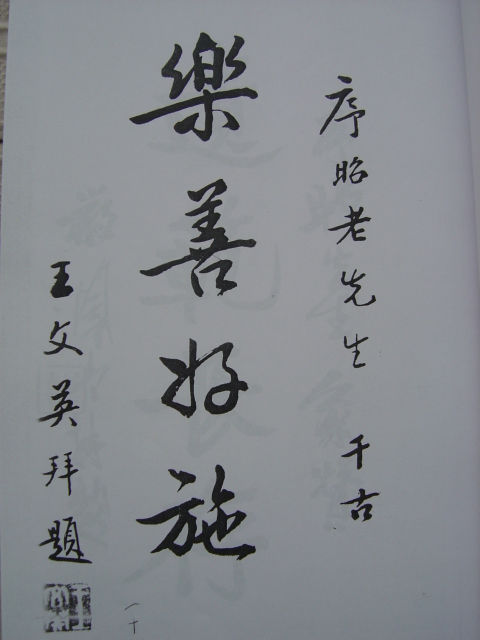 序昭老先生 千古
樂善好施
王文英拜題
二十